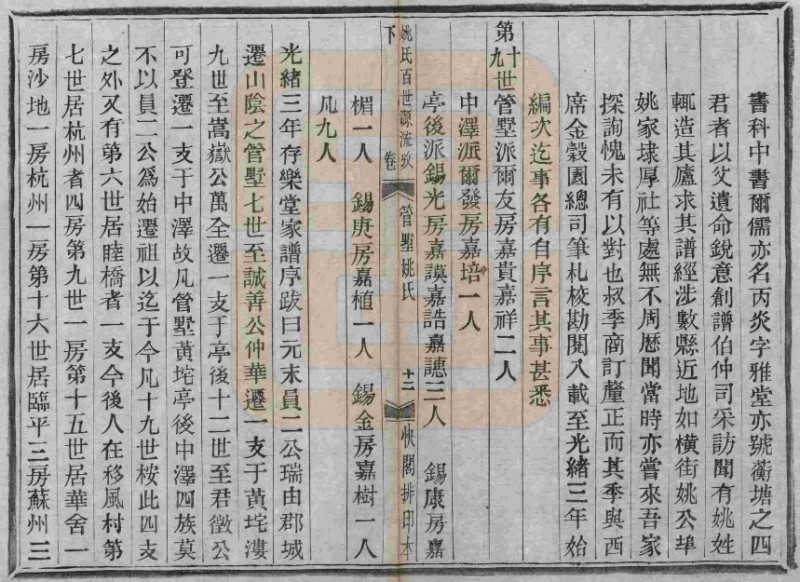 書科中書爾儒亦名丙炎字雅堂亦號蘅塘之四
君者以父遺命銳意創譜伯仲司采訪聞有姚姓
輒造其廬求其譜經涉數縣近地如橫街姚公埠
姚家埭厚社等處無不周歷聞當時亦嘗來吾家
探詢愧未有以對也叔季商訂釐正而其季與西
席金穀園總司筆札校勘閱八載至光緒三年始
編次迄事各有自序言其事甚悉
第十九世管墅派爾友房嘉貴嘉祥二人
中澤派爾發房嘉培一人
亭後派錫光房嘉謨嘉誥嘉譓三人 錫康房嘉
姚氏百世源流攷 卷下 管墅姚氏 十二 快閣排印本
楣一人 錫庚房嘉植一人 錫金房嘉樹一人
凡九人
光緒三年存樂堂家譜序跋曰元末員二公瑞由郡城
遷山陰之管墅七世至誠善公仲華遷一支于黃垞漊
九世至嵩嶽公萬全遷一支于亭後十二世至君徵公
可登遷一支于中澤故凡管墅黃垞亭後中澤四族莫
不以員二公爲始遷祖以迄于今凡十九世桉此四支
之外又有第六世居睦橋者一支今後人在移風村第
七世居杭州者四房第九世一房第十五世居華舍一
房沙地一房杭州一房第十六世居臨平三房蘇州三